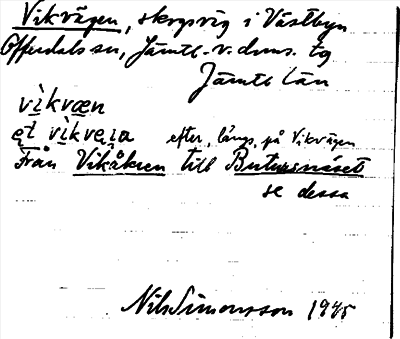 Vikvägen, skogsväg i Västbyn
Offerdals sn, Jämtl. v. doms. tg
Jämtl län
vikvæn
et vikveia efter, längs, på Vikvägen
Från Vikåkren till Butursnäset
se dessa
Nils Simonsson 1945